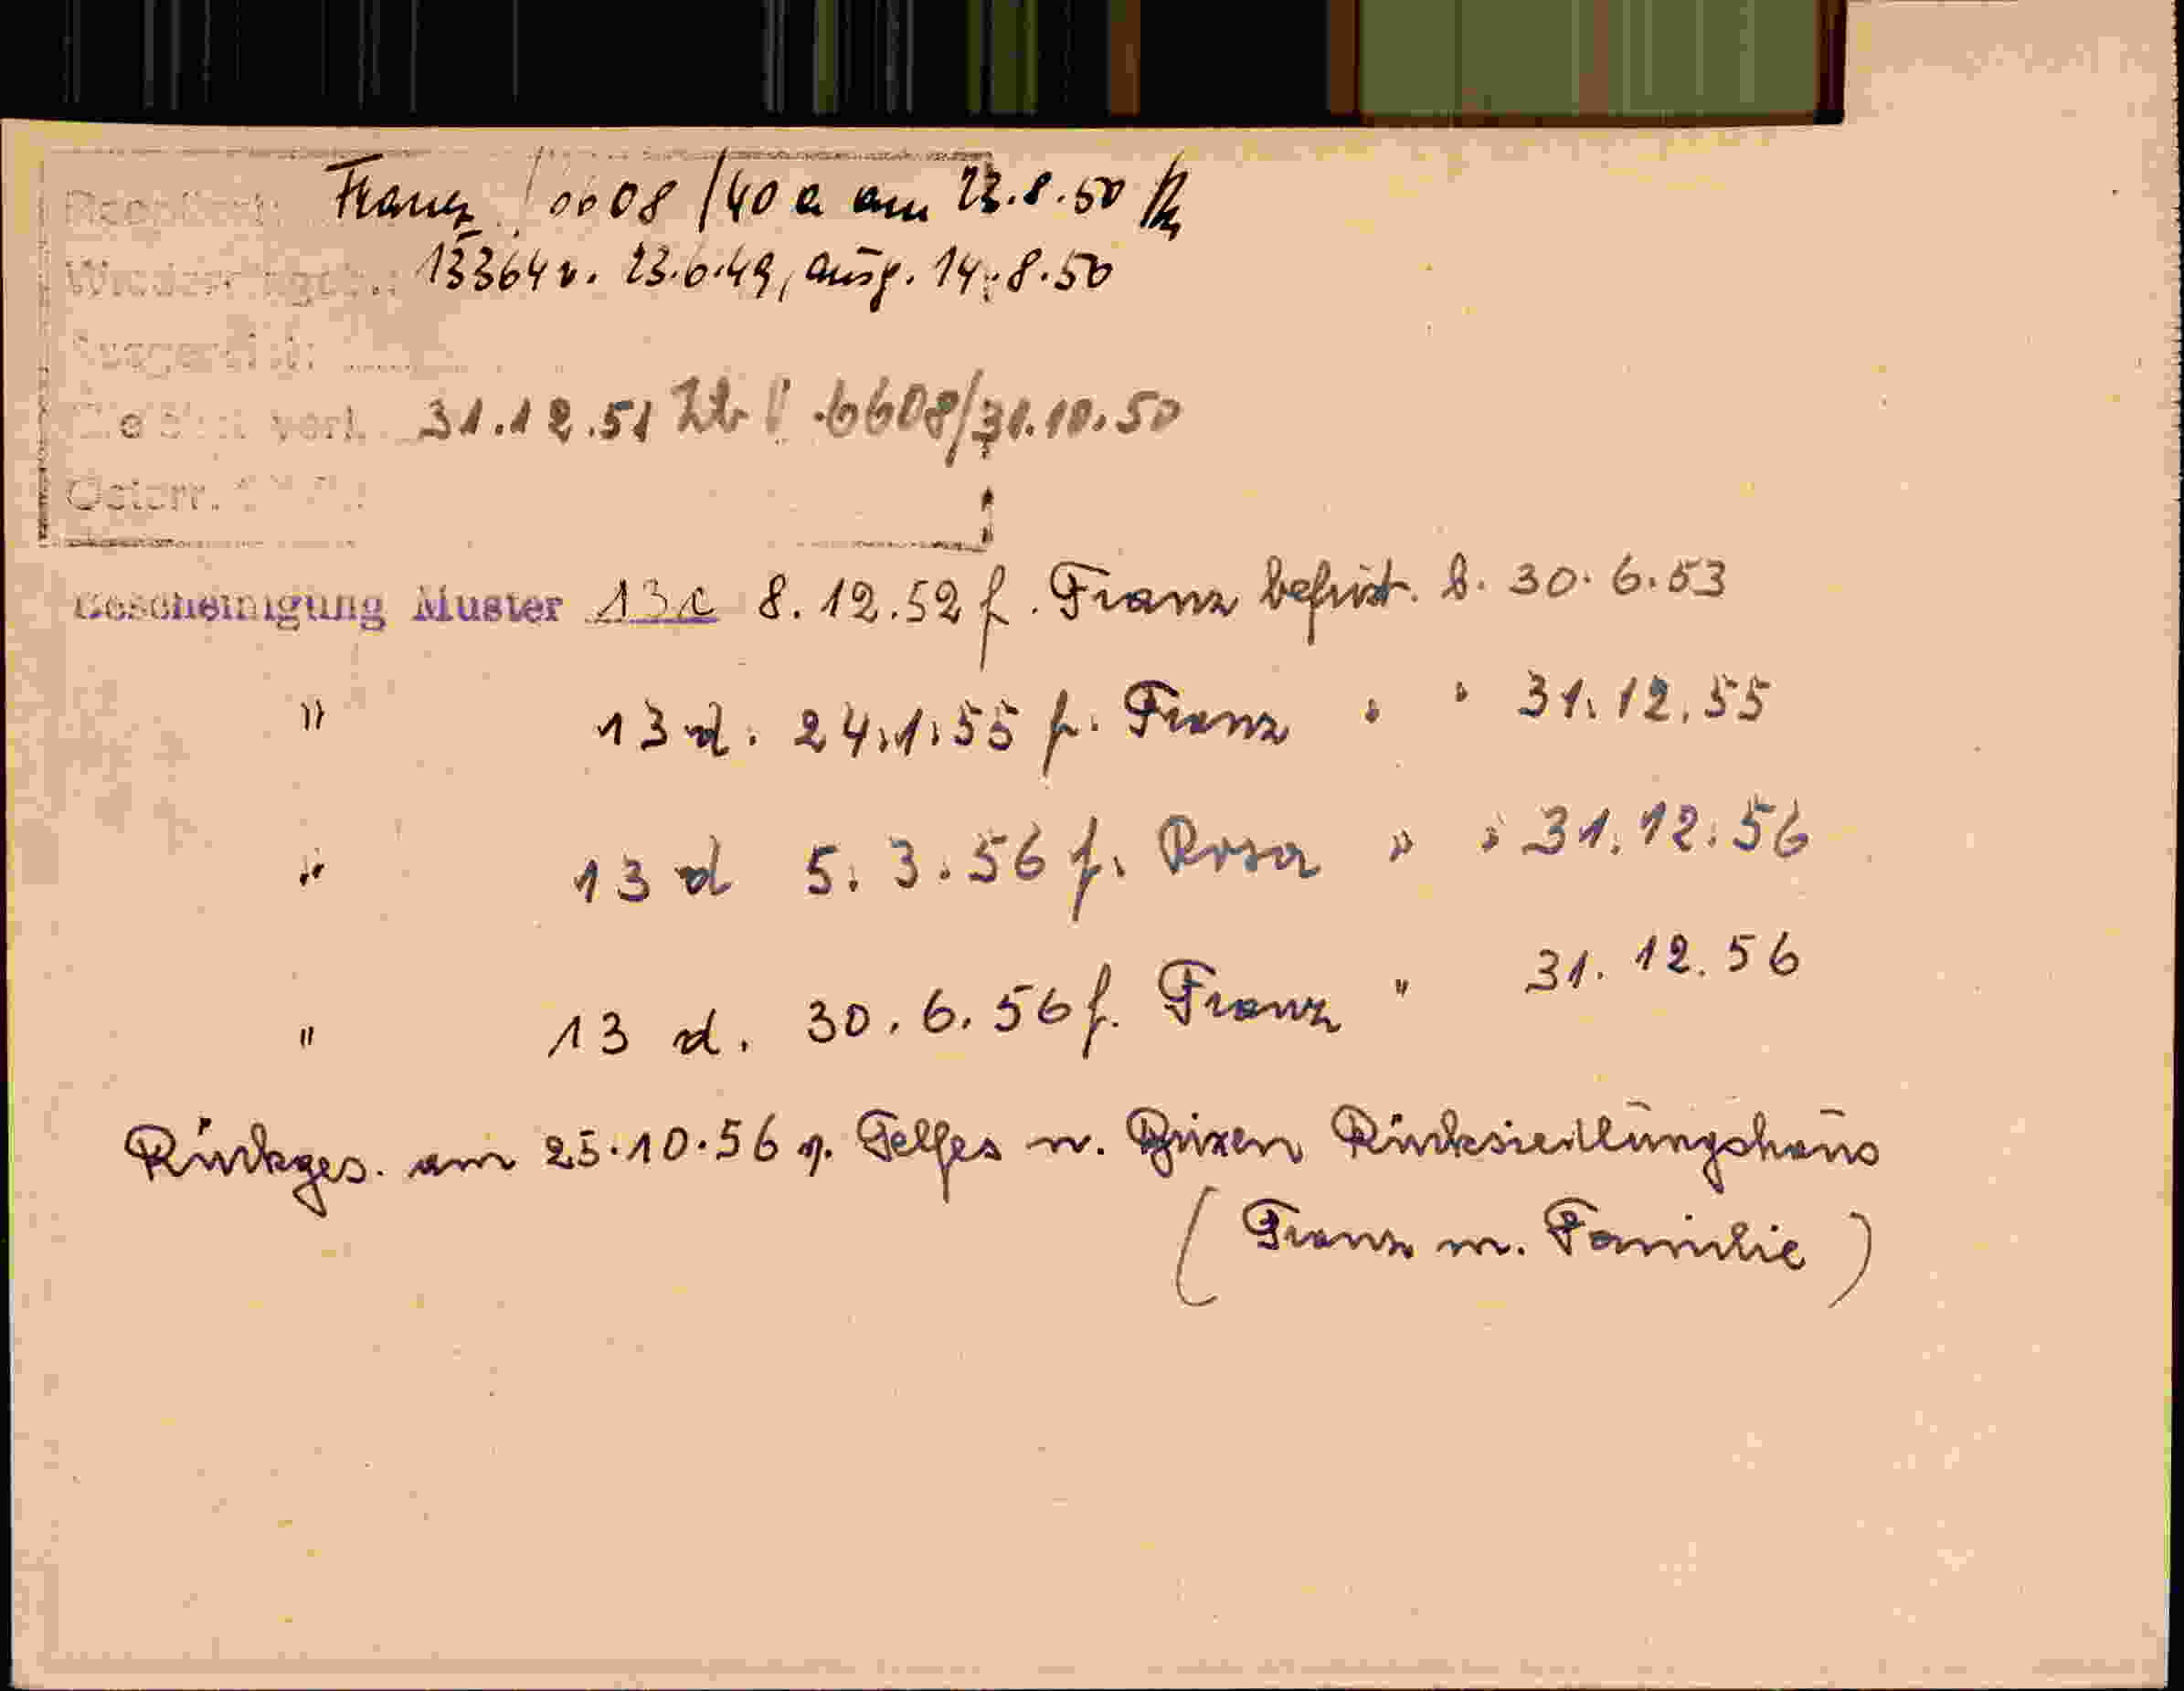 Franz 6608/40a am 23.8.50
13364 v. 23.6.49, ausg. 14.8.50
verl. 31.12.51 6608/31.10.50
Österr.
Bescheinigung Muster 13c 8.12.52 f. Franz befrist. b. 30.6.53
" 13 d. 24.1.55 f. Franz " " 31.12.55
" 13 d 5.3.56 f. Rosa " " 31.12.56
" 13 d. 30.6.56 f. Franz " 31.12.56
Rückges. am 25.10.56 v. Telfes n. Brixen Rücksiedlungshaus
(Franz m. Familie)